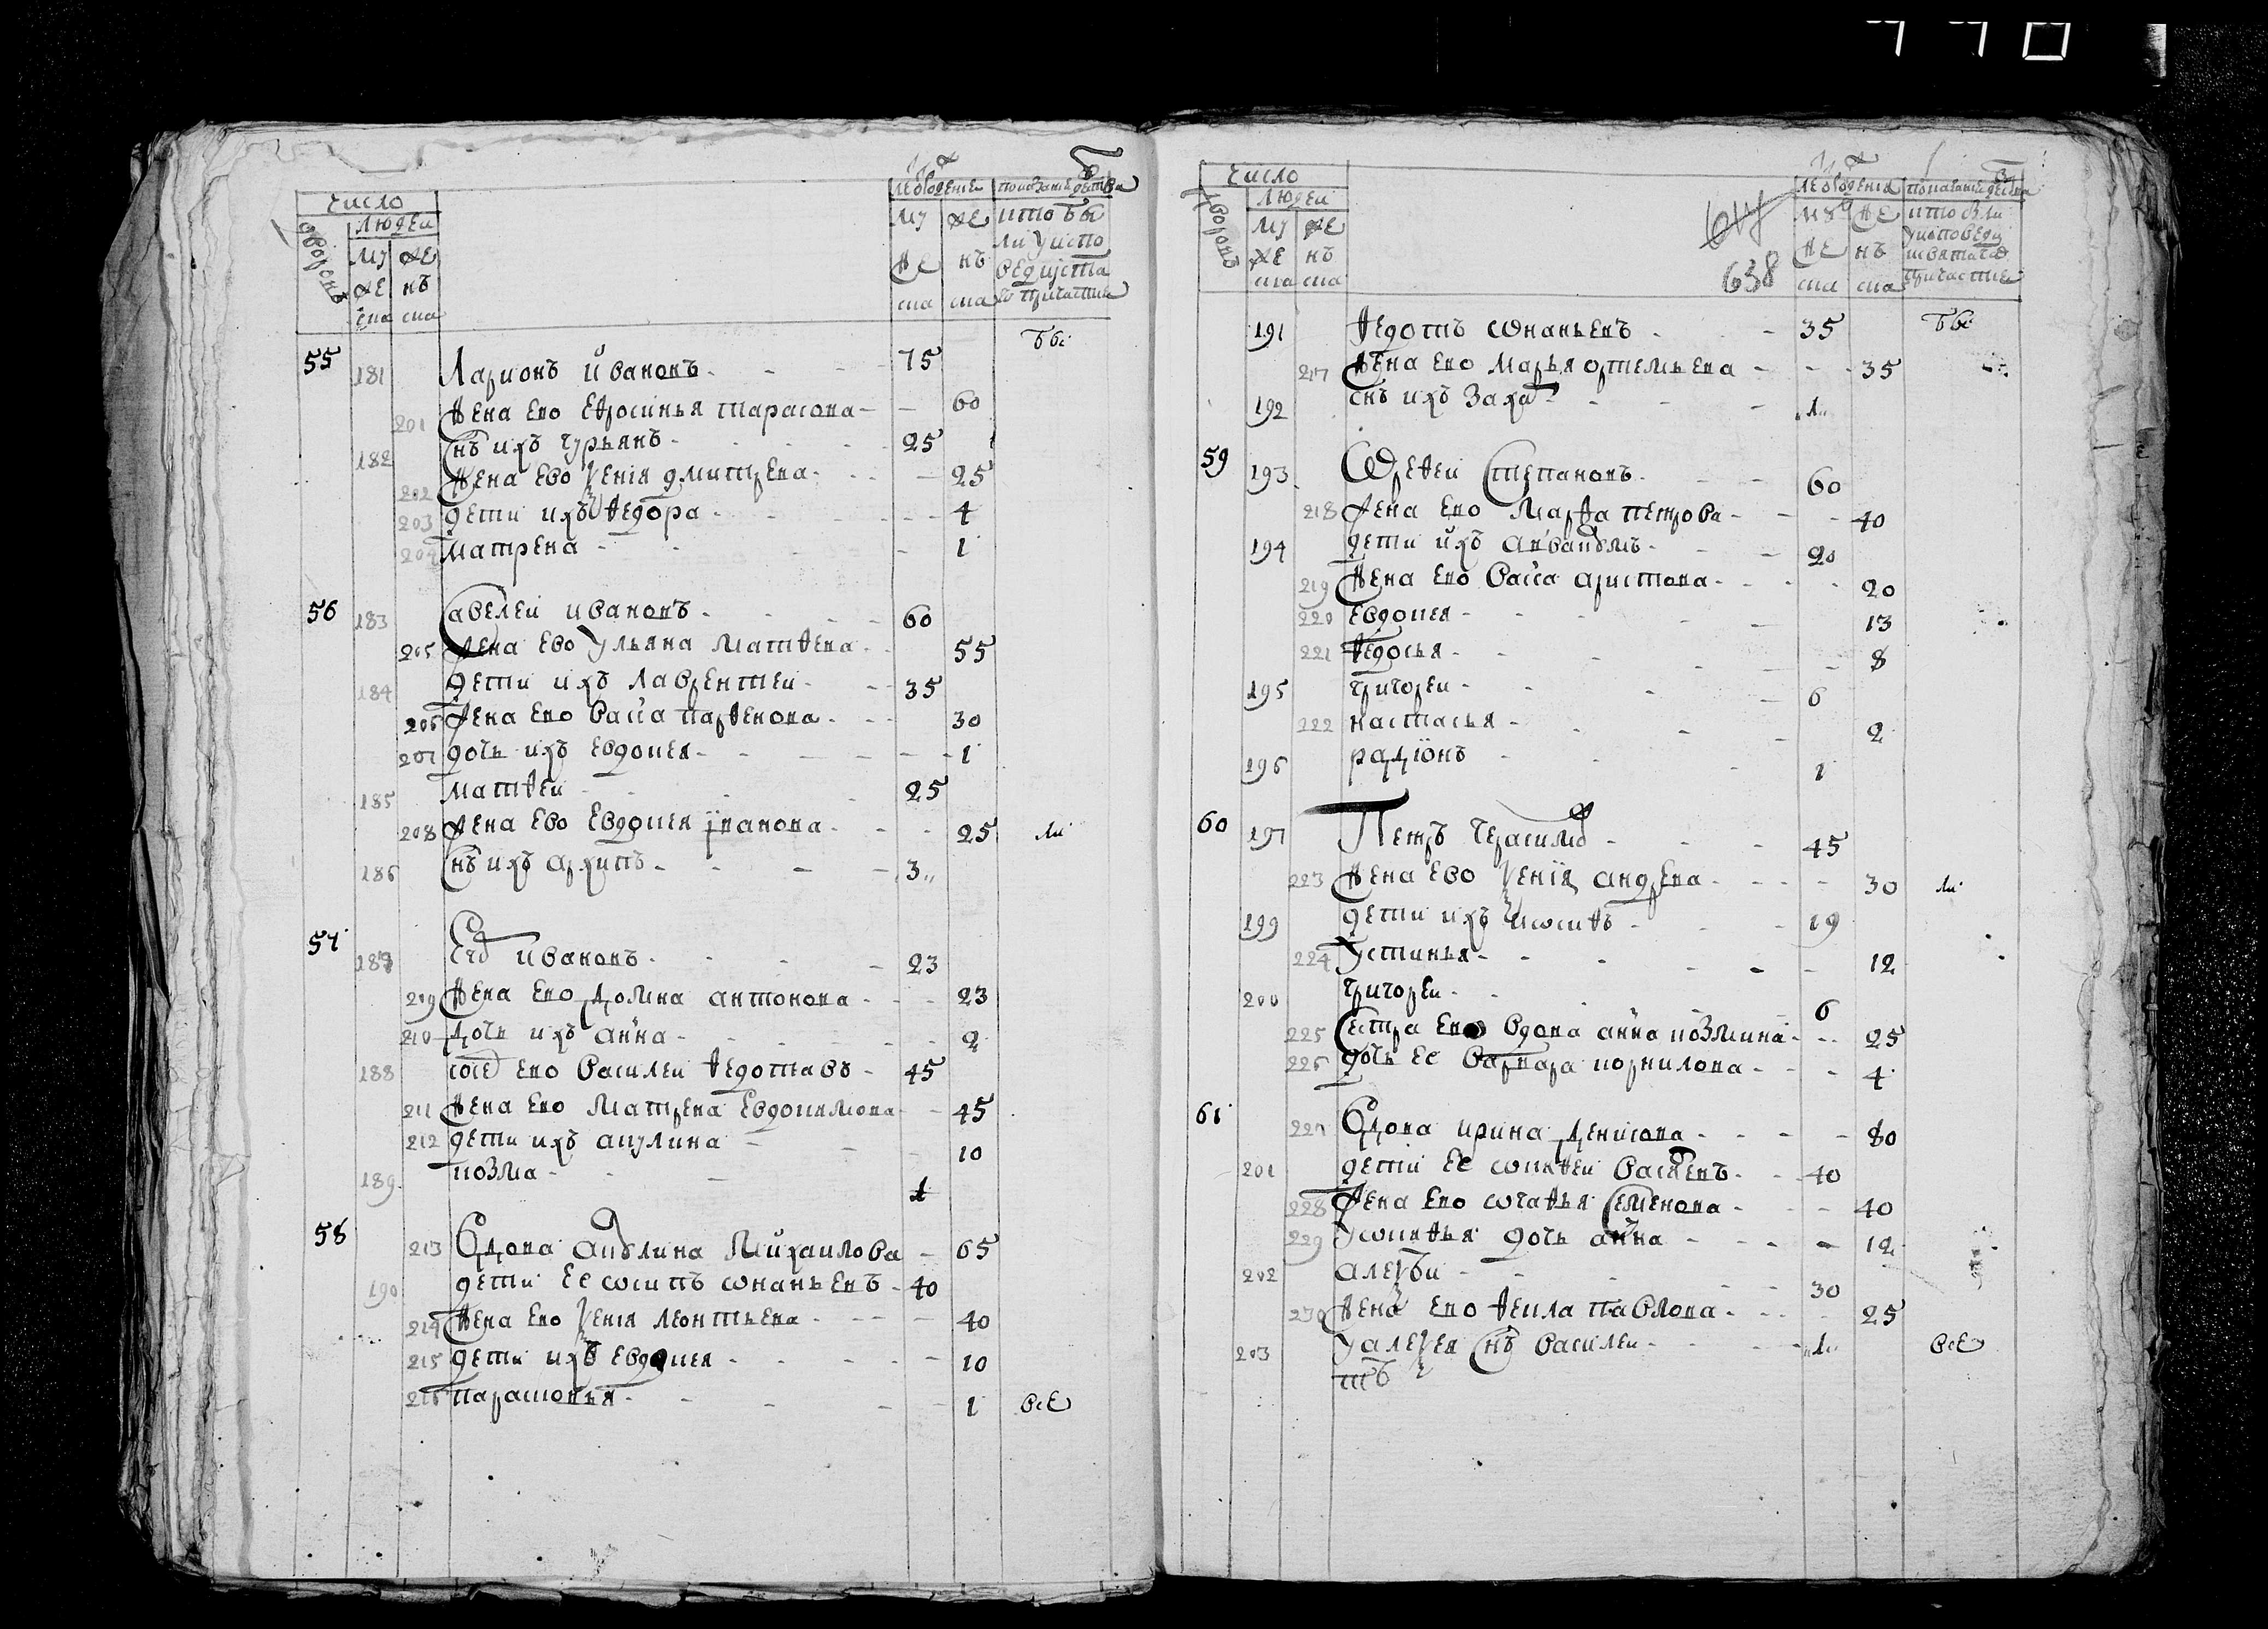 число
дворовъ
людей
мужеска
женска
лѣтъ рожденія
мужеска
женска
показаніе действа
кто былъ у исповеди и св причастия
бы
55 181 Ларионъ Ивановъ 75
201 жена ево Ефросинья Тарасова 60
182 снъ ихъ Гурьянъ 25
202 жена ево Ѯения Дмитрева 25
203 дети ихъ Ѳедора 4
204 Матрена 1
56 183 Савелеи Ивановъ 60
205 жена ево Ульяна Матѳева 55
184 дети ихъ Лаврентеи 35
206 жена ево Васса Парѳенова 30
207 дочь ихъ Евдокея 1
185 Матѳеи 25
208 жена ево Евдокея Иванова 25 ли
186 снъ ихъ Архипъ 3
57 187 Ивановъ 23
209 жена ево Домна Антонова 23
210 дочь ихъ Анна 2
188 ево Василеи Ѳедотавъ 45
211 жена ево Матрена Евдокимова 45
212 дети ихъ Акулина 10
189 Козма 4
58 213 Вдова Акулина Михаилова 65
190 дети ее Ѡсипъ Ѡнаньевъ 40
214 жена ево Ѯения Леонтьева 40
215 дети ихъ Евдокея 10
216 Парасковья 1 все
число
дворовъ
людей
мужеска
женска
638
191 Ѳедотъ Ѡнаньевъ 35 бы
217 жена ево Марья Ортемьева 35
192 снъ ихъ Захаръ 1
59 193 Ѡрѳеи Степановъ 60
218 жена ево Марѳа Петрова 40
194 дети ихъ Аввакумъ 20
219 жена ево Васса Аристова 20
220 Евдокея 13
221 Ѳедосья 8
195 Григореи 6
222 Настасья 2
196 Радионъ 1
60 197 Петръ Герасимов 45
223 жена ево Ѯения Андрева 30 ли
199 дети ихъ Иѡсиѳъ 19
224 Устинья 12
200 Григореи 6
225 сестра ево вдова Анна Козмина 25
226 дочь ее Варвара Корнилова 4
61 227 Вдова Ирина Денисова 80
201 дети ее Ѡкиѳеи 40
228 жена ево Ѡгаѳья Семенова 40
229 у Ѡкиѳья дочь Анна 12
202 Алеѯеи 30
230 жена ево Ѳекла Павлова 25
203 у Алеѯея снъ Василеи 1 все
тъ